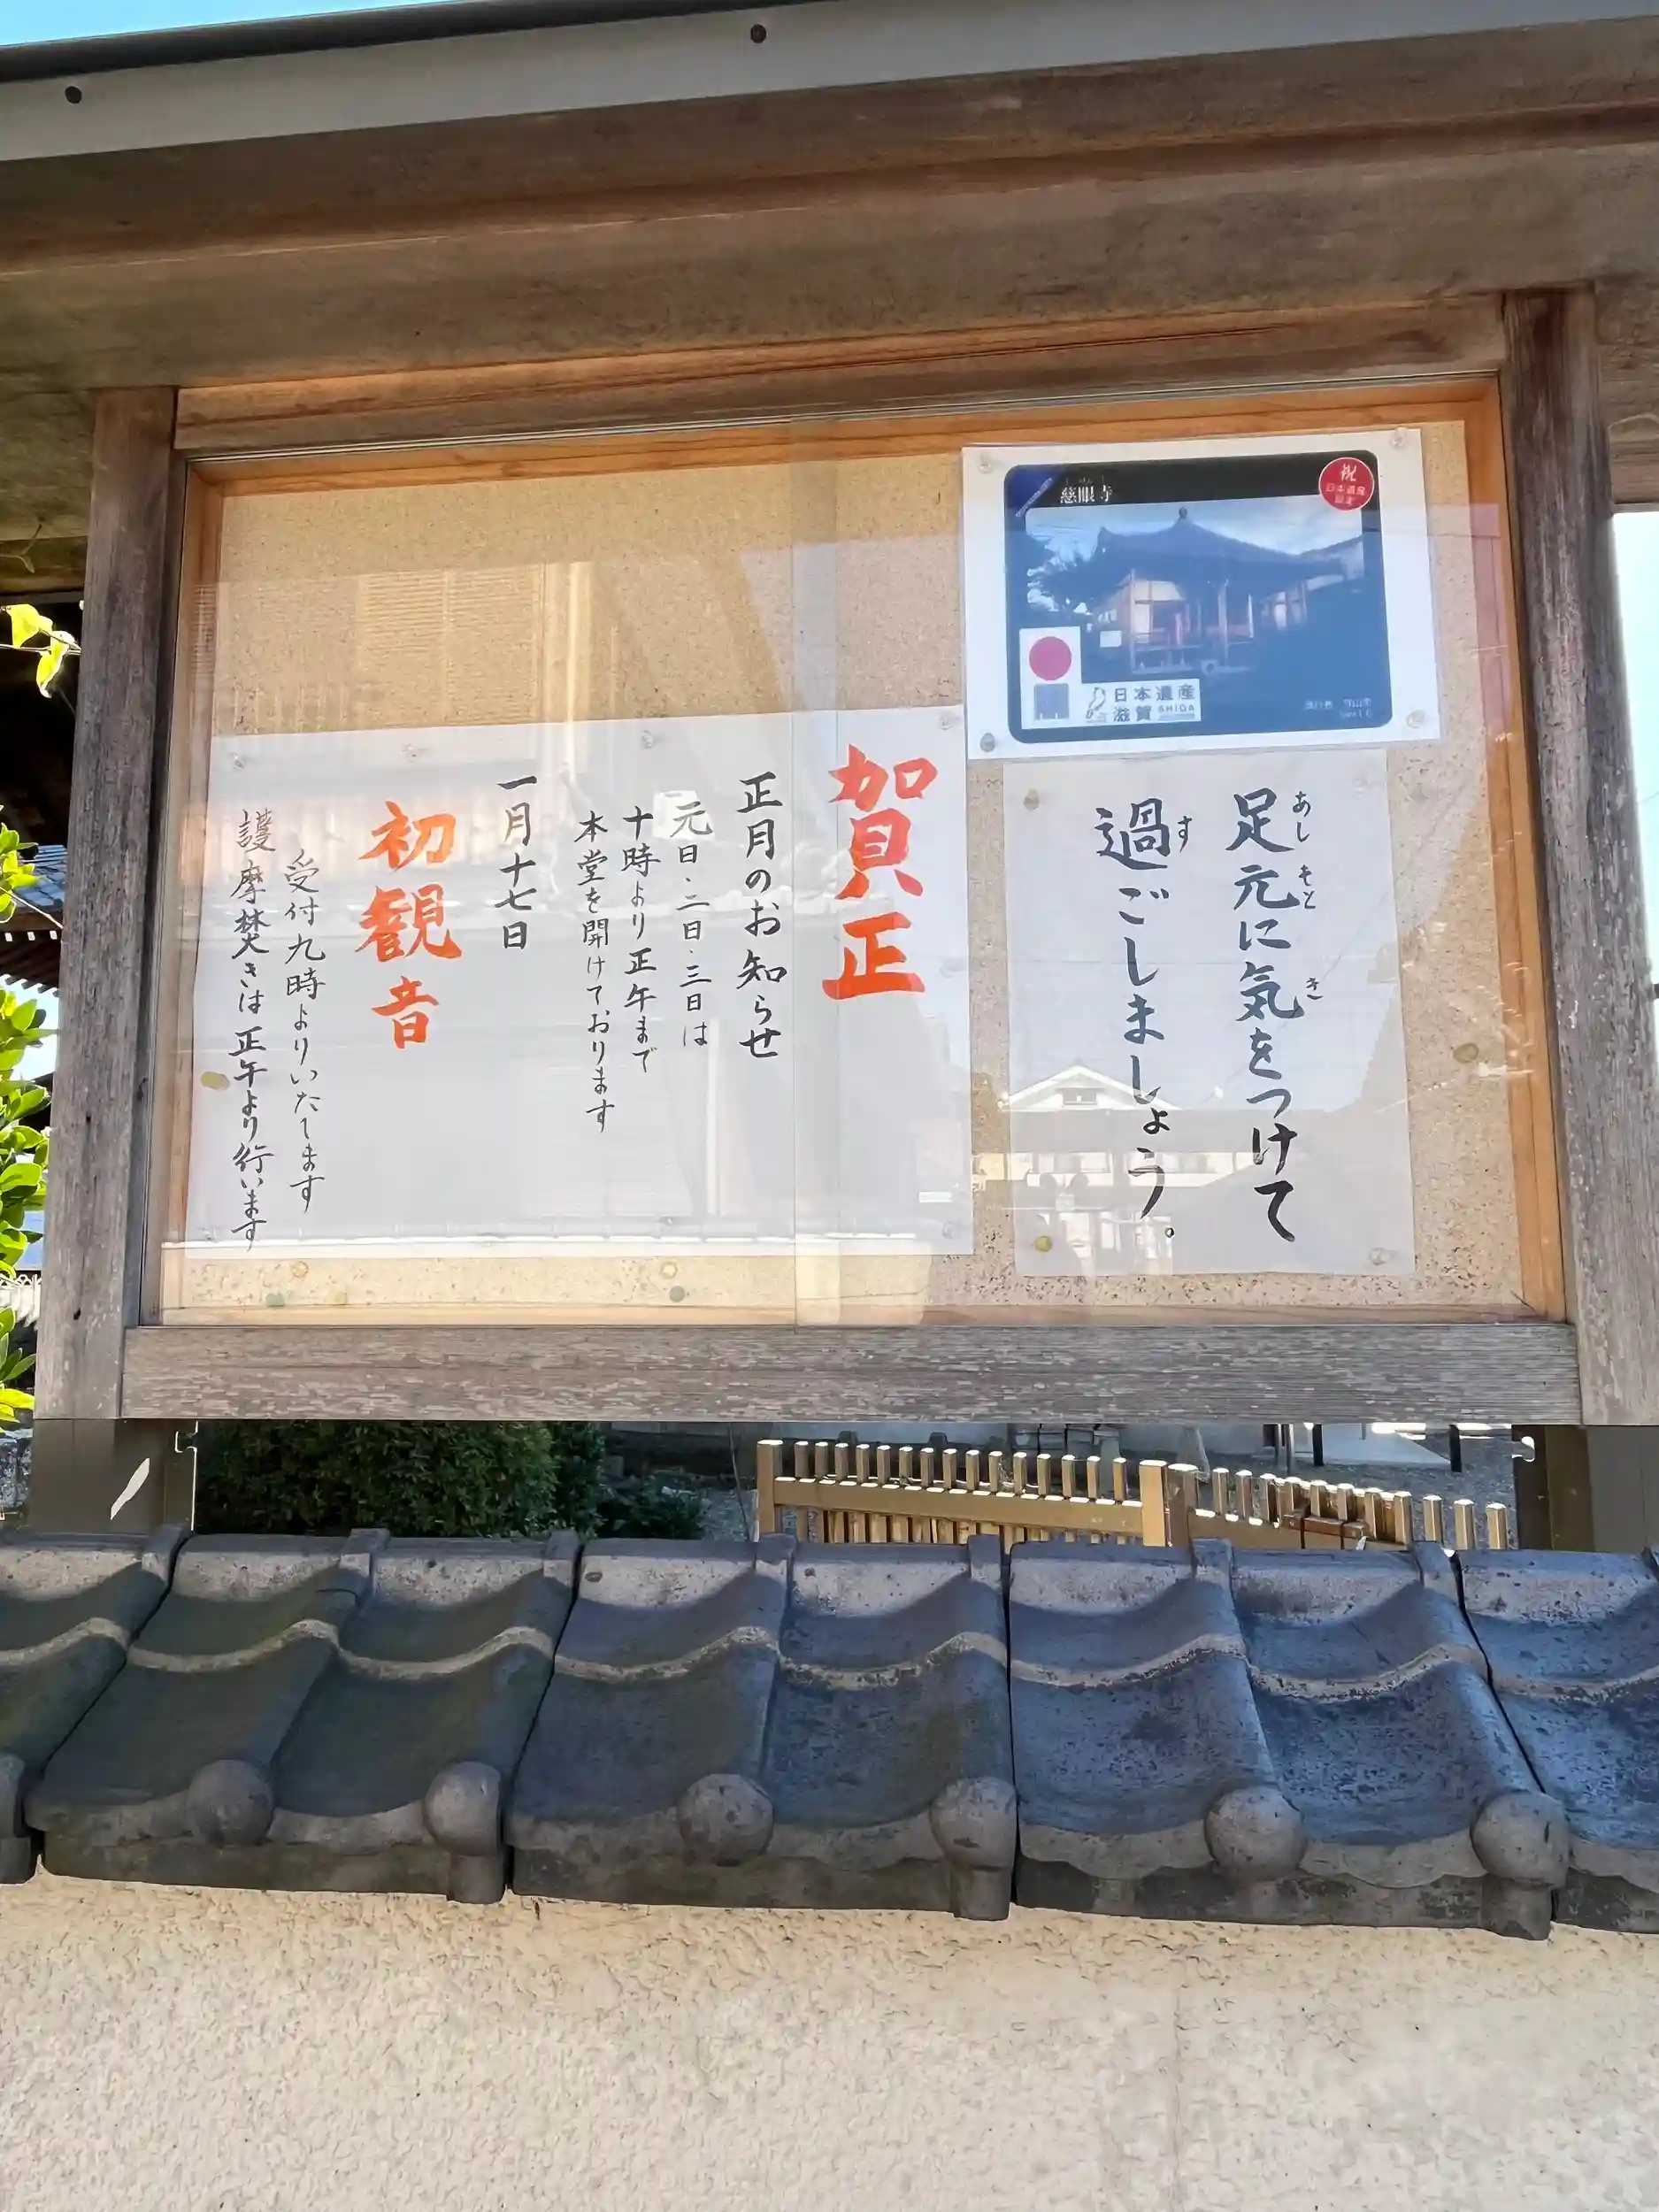 慈眼寺
祝
日本遺産
認定
日本遺産
滋賀 SHIGA
足元に気をつけて
あしもと
き
過ごしましょう。
す
賀正
正月のお知らせ
元日・二日・三日は
十時より正午まで
本堂を開けております
一月十七日
初観音
受付九時よりいたします
護摩焚きは正午より行います